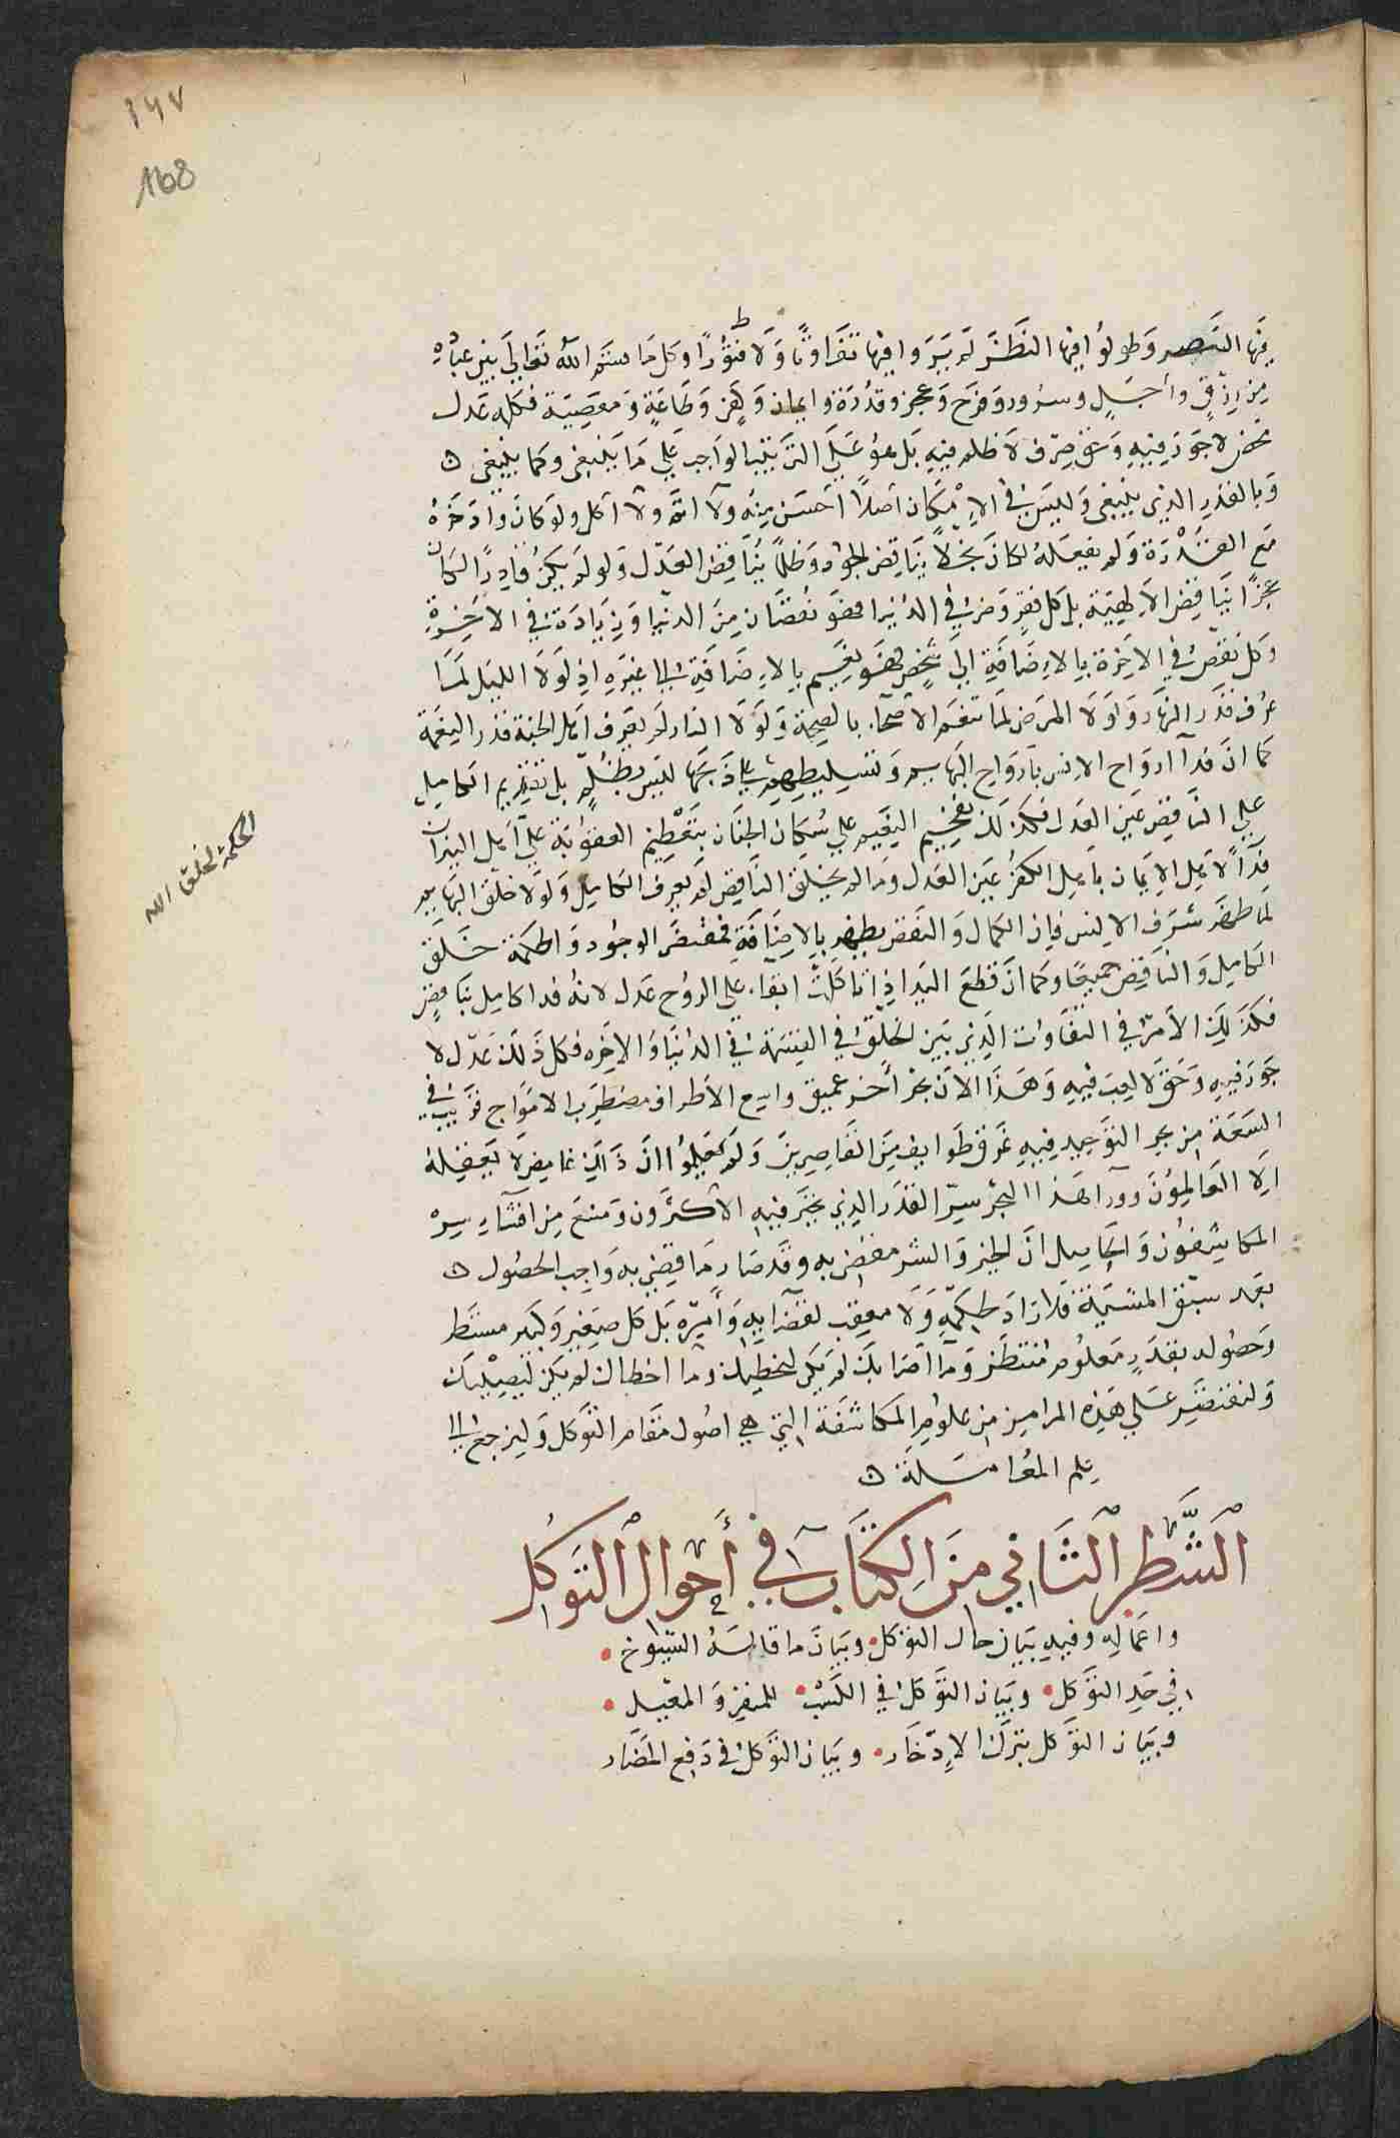 ١٤٧
168
فيها البصر وطولوا فيها النظر لم يروا فيها تفاوتًا ولا فتورًا وكل ما قسم الله تعالى بين عباده
من رزق وأجل وسرور وفرح وعجز وقدرة وايمان وكفر وطاعة ومعصية فكله عدل
محض لا جور فيه وحق صرف لا ظلم فيه بل هو على الترتيب الواجب على ما ينبغي وكما ينبغي ه
وبالقدر الذي ينبغي وليس في الإمكان أصلاً أحسن منه ولا اتم ولا اكمل ولو كان وادخره
مع القدرة ولم يفعله لكان بخلاً يناقض الجود وظلمًا يناقض العدل ولو لم يكن قادرًا لكان
عجزًا يناقض الالهية بل كل فقر وضر في الدنيا فهو نقصان من الدنيا وزيادة في الاخرة
وكل نقص في الاخرة بالاضافة الى شخص فهو نعيم بالاضافة الى غيره اذ لولا الليل لما
عرف قدر النهار ولولا المرض لما تنعم الاصحاء بالصحة ولولا النار لم يعرف اهل الجنة قدر النعمة
كما ان فدآ ارواح الانس بارواح البهايم وتسليطهم على ذبحها ليس بظلم بل تقديم الكامل
على الناقص عين العدل فكذلك تفخيم النعيم على سكان الجنان بتعظيم العقوبة على اهل النيران
فدآ لاهل الايمان باهل الكفر عين العدل وما لم يخلق الناقص لم يعرف الكامل ولولا خلق البهايم
لما ظهر شرف الانس فان الكمال والنقص يظهر بالاضافة فمقتضى الوجود والحكمة خلق
الكامل والناقص جميعًا وكما ان قطع اليد اذا تاكلت ابقاء على الروح عدل لانه فدا كامل بناقص
فكذلك الأمر في التفاوت الذي بين الخلق في القسمة في الدنيا والاخره فكل ذلك عدل لا
جور فيه وحق لا لعب فيه وهذا الان بحر أخر عميق واسع الأطراف مضطرب الامواج قريب في
السعة من بحر التوحيد فيه غرق طوايف من القاصرين ولم يعلموا ان ذلك غامض لا يعقله
الا العالمون وورآ هذا البحر سر القدر الذي تحير فيه الأكثرون ومنع من افشآء سره
المكاشفون والحاصل ان الخير والشر مقضى به وقد صار ما قضى به واجب الحصول ه
بعد سبق المشيئة فلا راد لحكمه ولا معقب لقضآيه وأمره بل كل صغير وكبير مستطر
وحصوله بقدر معلوم منتظر وما اصابك لم يكن ليخطيك وما اخطاك لم يكن ليصيبك
ولنقتصر على هذه المرامز من علوم المكاشفة التي هي اصول مقام التوكل ولنرجع الى
علم المعاملة ه
الشطر الثاني من الكتاب في أحوال التوكل
واعماله وفيه بيان حال التوكل • وبيان ما قاله الشيوخ •
في حد التوكل • وبيان التوكل في الكسب • للمنفرد والمعيل •
وبيان التوكل بترك الإدخار • وبيان التوكل في دفع المضار
الحكمة لخلق الله